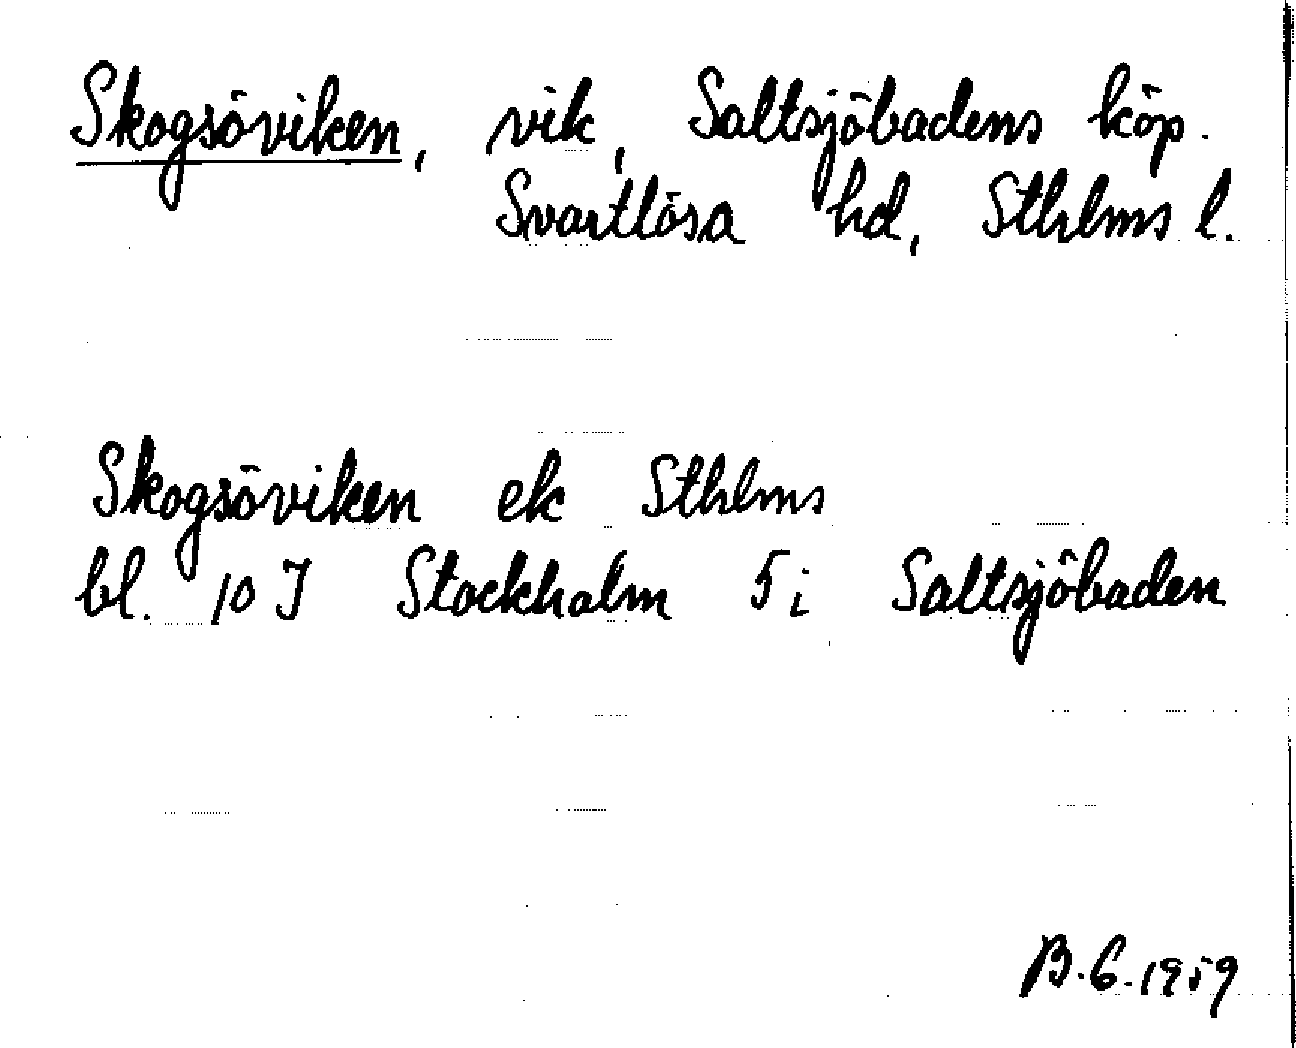 Skogsöviken, vik, Saltsjöbadens köp.
Svartlösa hd, Sthlms l.
Skogsöviken ek Sthlms
bl. 10 J Stockholm 5 i Saltsjöbaden
B.G. 1959